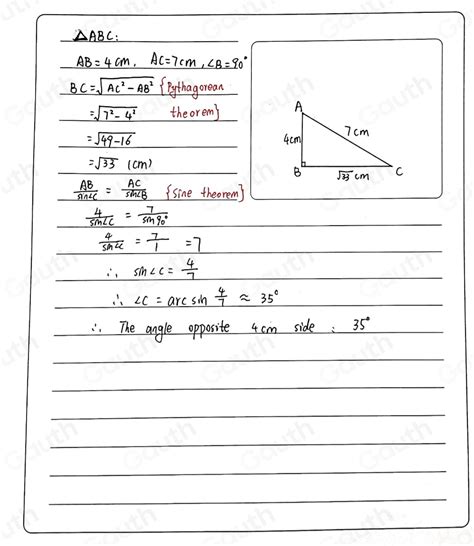 △ABC:
AB=4cm, AC=7cm, ∠B=90°
BC=√AC²-AB² {Pythagorean
=√7²-4² theorem}
=√49-16
=√33 (cm)
AB/sin∠C = AC/sin∠B {Sine theorem}
4/sin∠C = 7/sin90°
4/sin∠C = 7/1 =7
∴ sin∠C = 4/7
∴ ∠C = arcsin 4/7 ≈ 35°
∴ The angle opposite 4cm side : 35°
A
4cm
7cm
B
√33 cm
C
Gauth